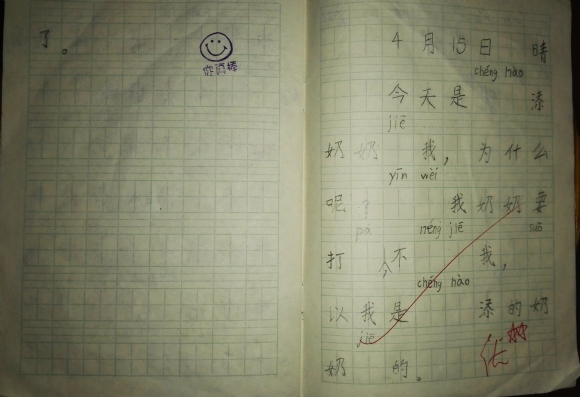 了。
你真棒
4月15日 晴
chéng hào
今天是 添
jiē
奶奶 我,为什么
yīn wèi
呢? 我奶奶要
pá néng jiē suǒ
打 不 我,
chéng hào
以我是 添的奶
jiē
奶 的。